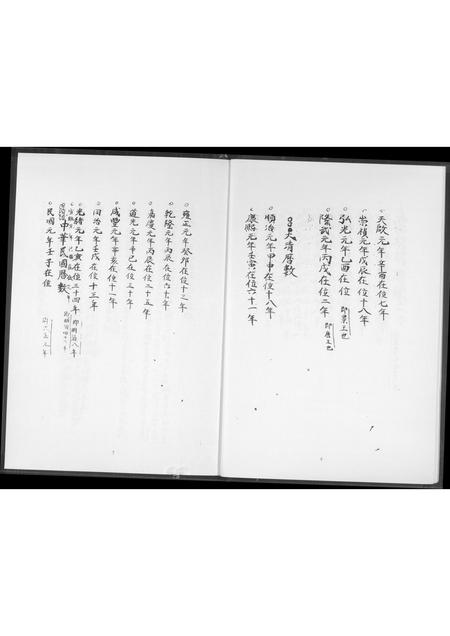 天啟元年辛酉在位七年
崇禎元年戊辰在位十八年
弘光元年乙酉在位
隆武元年丙戌在位二年 即唐王也
大清曆數
順治元年甲申在位十八年
康熙元年壬寅在位六十一年
雍正元年癸卯在位十三年
乾隆元年丙辰在位六十年
嘉慶元年丙辰在位二十五年
道光元年辛巳在位三十年
咸豐元年辛亥在位十一年
同治元年壬戌在位十三年
光緒元年乙亥在位三十四年 即明治八年
中華民國曆數
民國元年壬子在位